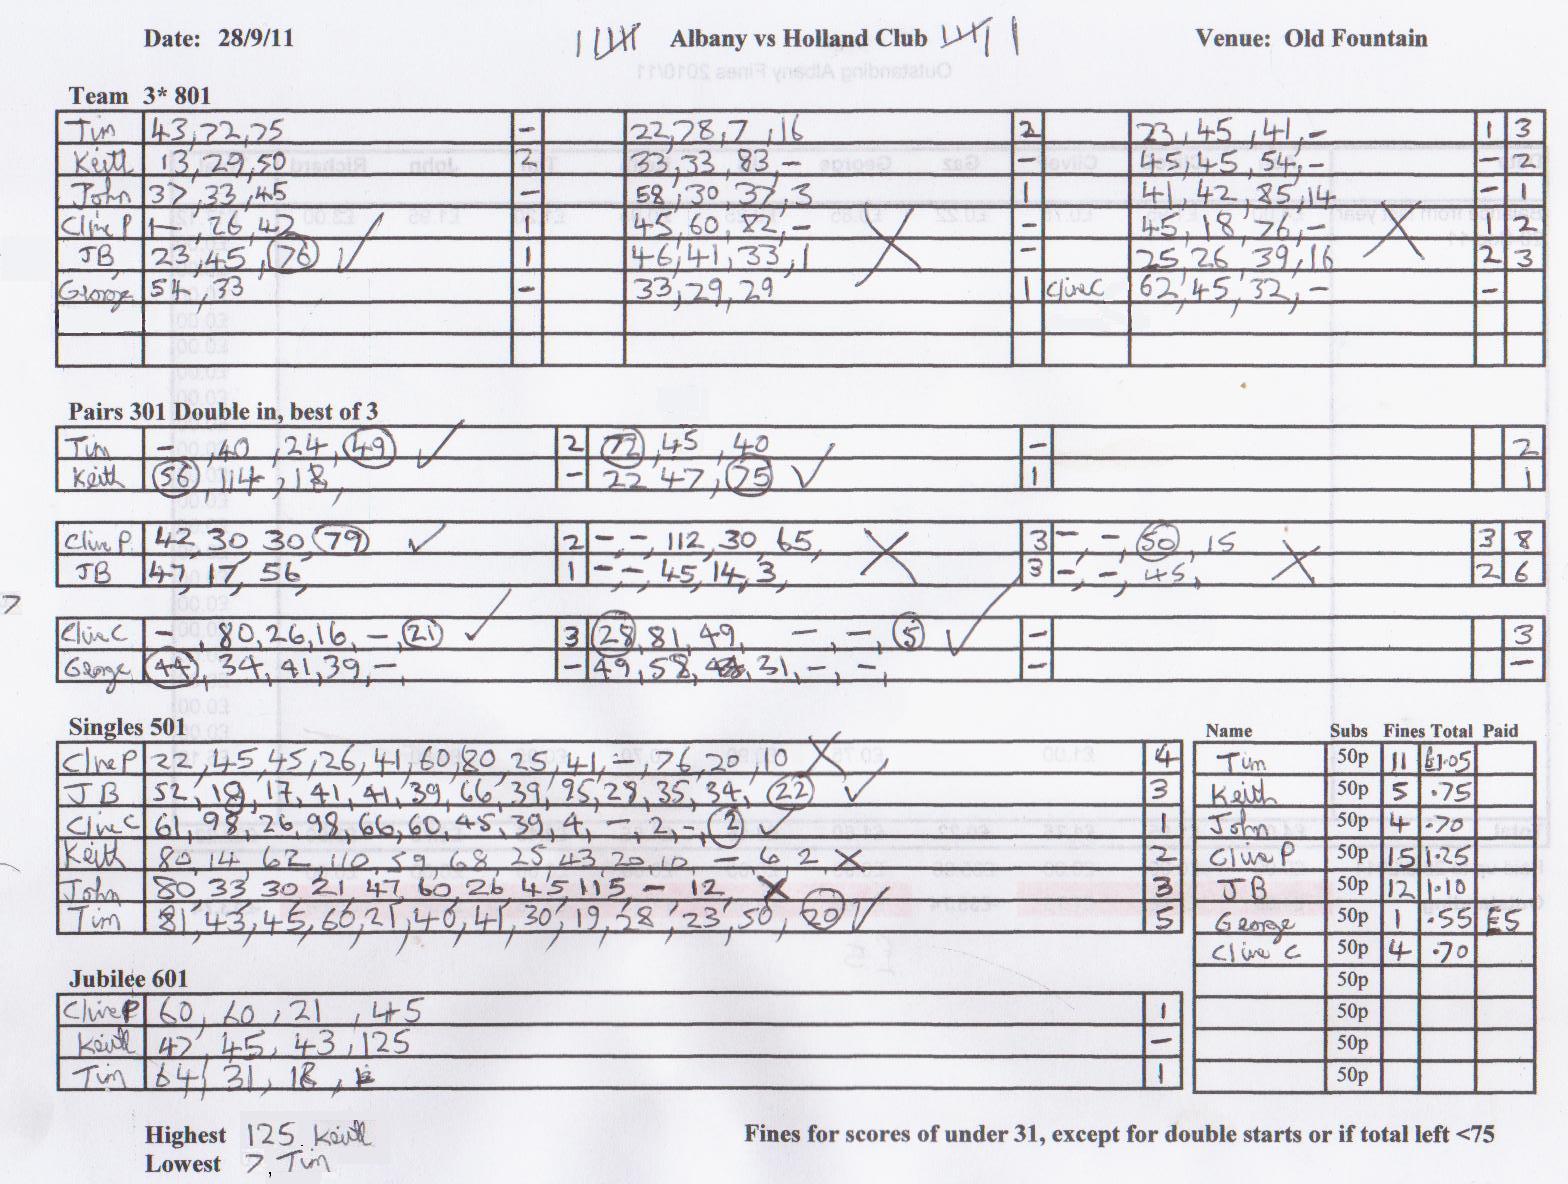 Date: 28/9/11 Albany vs Holland Club Venue: Old Fountain
Team 3* 801
Tim 43,22,25 - 22,28,7,16 2 23,45,41,- 1 3
Keith 13,29,50 2 33,33,83,- - 45,45,54,- - 2
John 37,33,45 - 58,30,37,3 1 41,42,85,14 - 1
Clive P 1-,26,42 1 45,60,82,- - 45,18,76,- 1 2
JB 23,45,76 1 46,41,33,1 - 25,26,39,16 2 3
George 54,33 - 33,29,29 1 Clive C 62,45,32,- -
Pairs 301 Double in, best of 3
Tim -,40,24,49 2 72,45,40 - 2
Keith 56,114,18, - 22 47,75 1 1
Clive P 42,30,30,79 2 -,-,112,30,65, 3 -,-,50,15 3 8
JB 47,17,56, 1 -,-,45,14,3, 3 -,-,45, 2 6
Clive C -,80,26,16,-,21 3 28,81,49, -,-,5 - 3
George 44,34,41,39,-, - 49,58, 31,-,-, - -
Singles 501
Clive P 22,45,45,26,41,60,80,25,41,-,76,20,10 4
JB 52,18,17,41,41,39,66,39,95,28,35,34,22 3
Clive C 61,98,26,98,66,60,45,39,4,-,2,-,2 1
Keith 80,14,62,110,59,68,25,43,20,10 - 6,2 2
John 80 33 30 21,47,60,26,45,115,-,12, 3
Tim 81,43,45,60,21,40,41,30,19,28,23,50,20 5
Name Subs Fines Total Paid
Tim 50p 11 £1.05
Keith 50p 5 .75
John 50p 4 .70
Clive P 50p 15 1.25
JB 50p 12 1.10
George 50p 1 .55 £5
Clive C 50p 4 .70
50p
50p
50p
50p
Jubilee 601
Clive P 60,60,21,45 1
Keith 47,45,43,125 -
Tim 64,31,18, 1
Highest 125 Keith
Fines for scores of under 31, except for double starts or if total left <75
Lowest 7, Tim